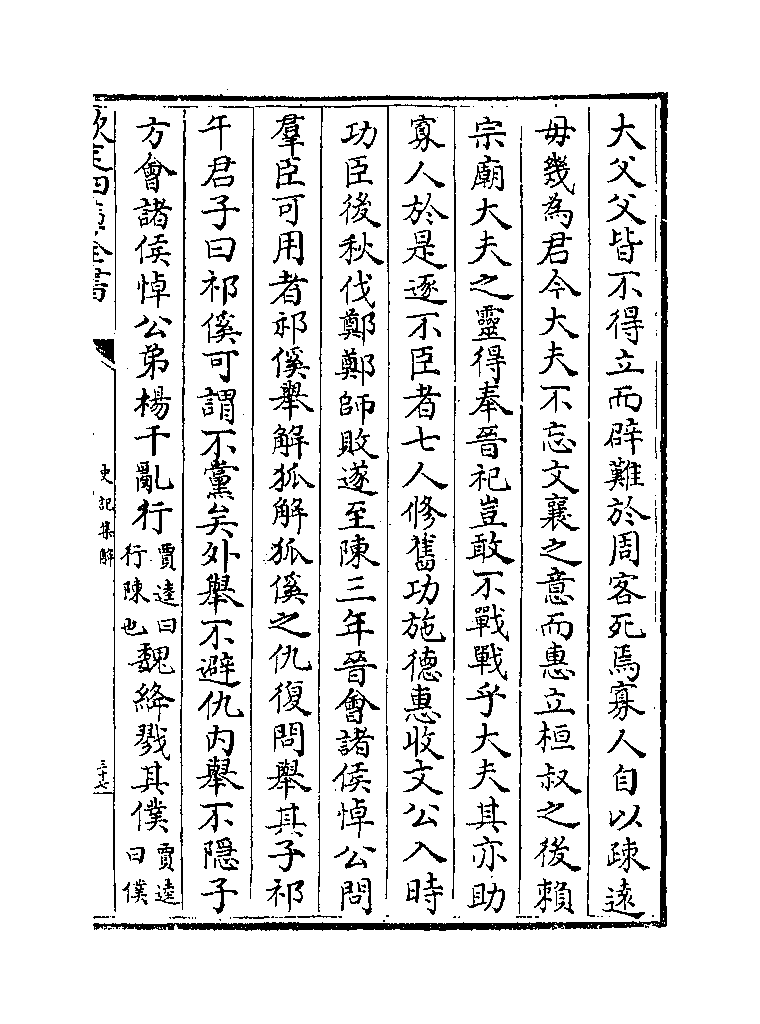 大父父皆不得立而辟難於周客死焉寡人自以疎遠
毋幾為君今大夫不忘文襄之意而惠立桓叔之後賴
宗廟大夫之靈得奉晉祀豈敢不戰戰乎大夫其亦助
寡人於是逐不臣者七人修舊功施德惠收文公入時
功臣後秋伐鄭鄭師敗遂至陳三年晉會諸侯悼公問
羣臣可用者祁傒舉解狐解狐傒之仇復問舉其子祁
午君子曰祁傒可謂不黨矣外舉不避仇内舉不隠子
方會諸侯悼公弟楊干亂行賈逵曰行陳也魏絳戮其僕賈逵曰僕
欽定四庫全書
史記集解
三十七